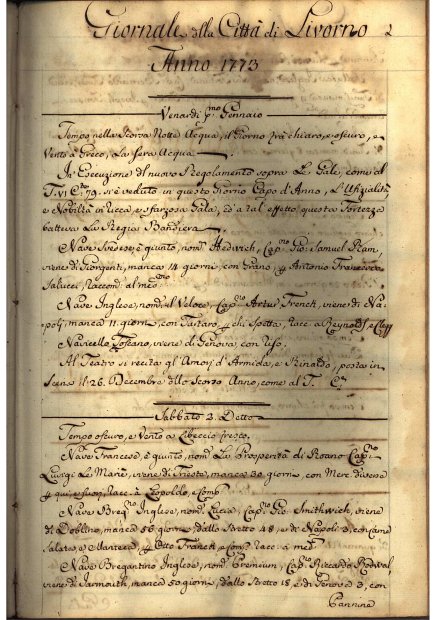 Giornale della Città di Livorno
Anno 1773
Venardi pmo Gennaio
Tempo, nella Scorsa Notte Acqua, il Giorno frà chiaro, e oscuro, e
Vento à Greco, La sera Acqua
In Esecuzione del nuovo Regolamento sopra Le Gale, come al
T. VI Cte 79, si è veduto in questo Giorno Capo d'Anno, L'Ufizialità
e Nobiltà in ricca, e sfarzosa Gala, ed à tal effetto questa Fortezza
batteva La Regia Bandiera
Nave Svedese, è giunto, nomta Hedwich, Capno Gio: Samuel Ram,
viene di Giorgenti, manca 14 giorni, con Grano, p Antonio Francesco
Salucci, Raccond. al medmo
Nave Inglese, nomta il Veloce, Capno Artur French, viene di Na-
poli, manca 11 giorni, con Tartaro p chi spetta, racc. a Reynolds, e
Navicello Toscano, viene di Genova con
Al Teatro si recita gl'Amori d'Armida, e Rinaldo, posta in
Scena il 26. Decembre dello Scorso Anno, come al T. Cte
Sabbato 2. Detto
Tempo oscuro, e Vento a Libeccio fresco.
Nave Francese, è giunto, nomta La Prosperità di Roano Capno
Luigi Le viene di Trieste, manca 30 giorni, con Merc. diverse
p qui, e fuori, racc. à Leopoldo, e Comp.
Nave Bregno Inglese, nomta Lucia, Capno Gio: Smithwich, viene
di Doblino, manca 56 giorni, dallo Stretto 48, e da Napoli 3, con carne
Salata, e Manteca, p Otto Franck e Comp. racc. a med.
Nave Bregantino Inglese, nomto Premium, Capno Riccardo
viene di Jarmouth, manca 50 giorni, dallo Stretto 18, e di Genova 3, con
Cannine